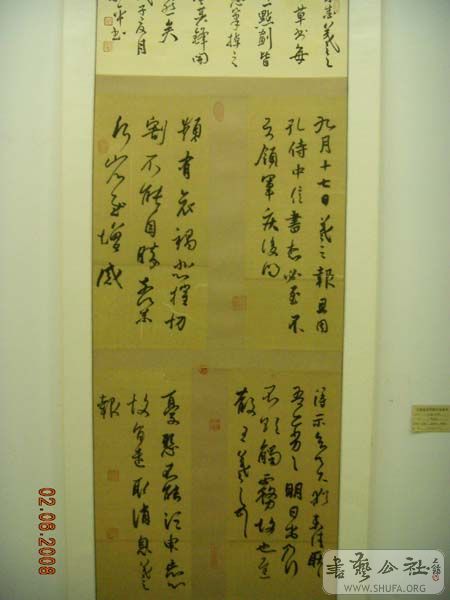 羲之
草書每
一點劃皆
九月十七日羲之報且因
孔侍中信書想必至不
知領軍疾後問
頻有哀禍悲摧切
割不能自勝奈何奈
何省慰增感
得示知足下猶未佳耿
吾亦劣劣明日出乃行
不欲觸霧故也遲
散王羲之頓首
憂懸不能須臾忘心
故旨遣取消息羲之
報
02.06.2008
書藝公社
WWW.SHUFA.ORG